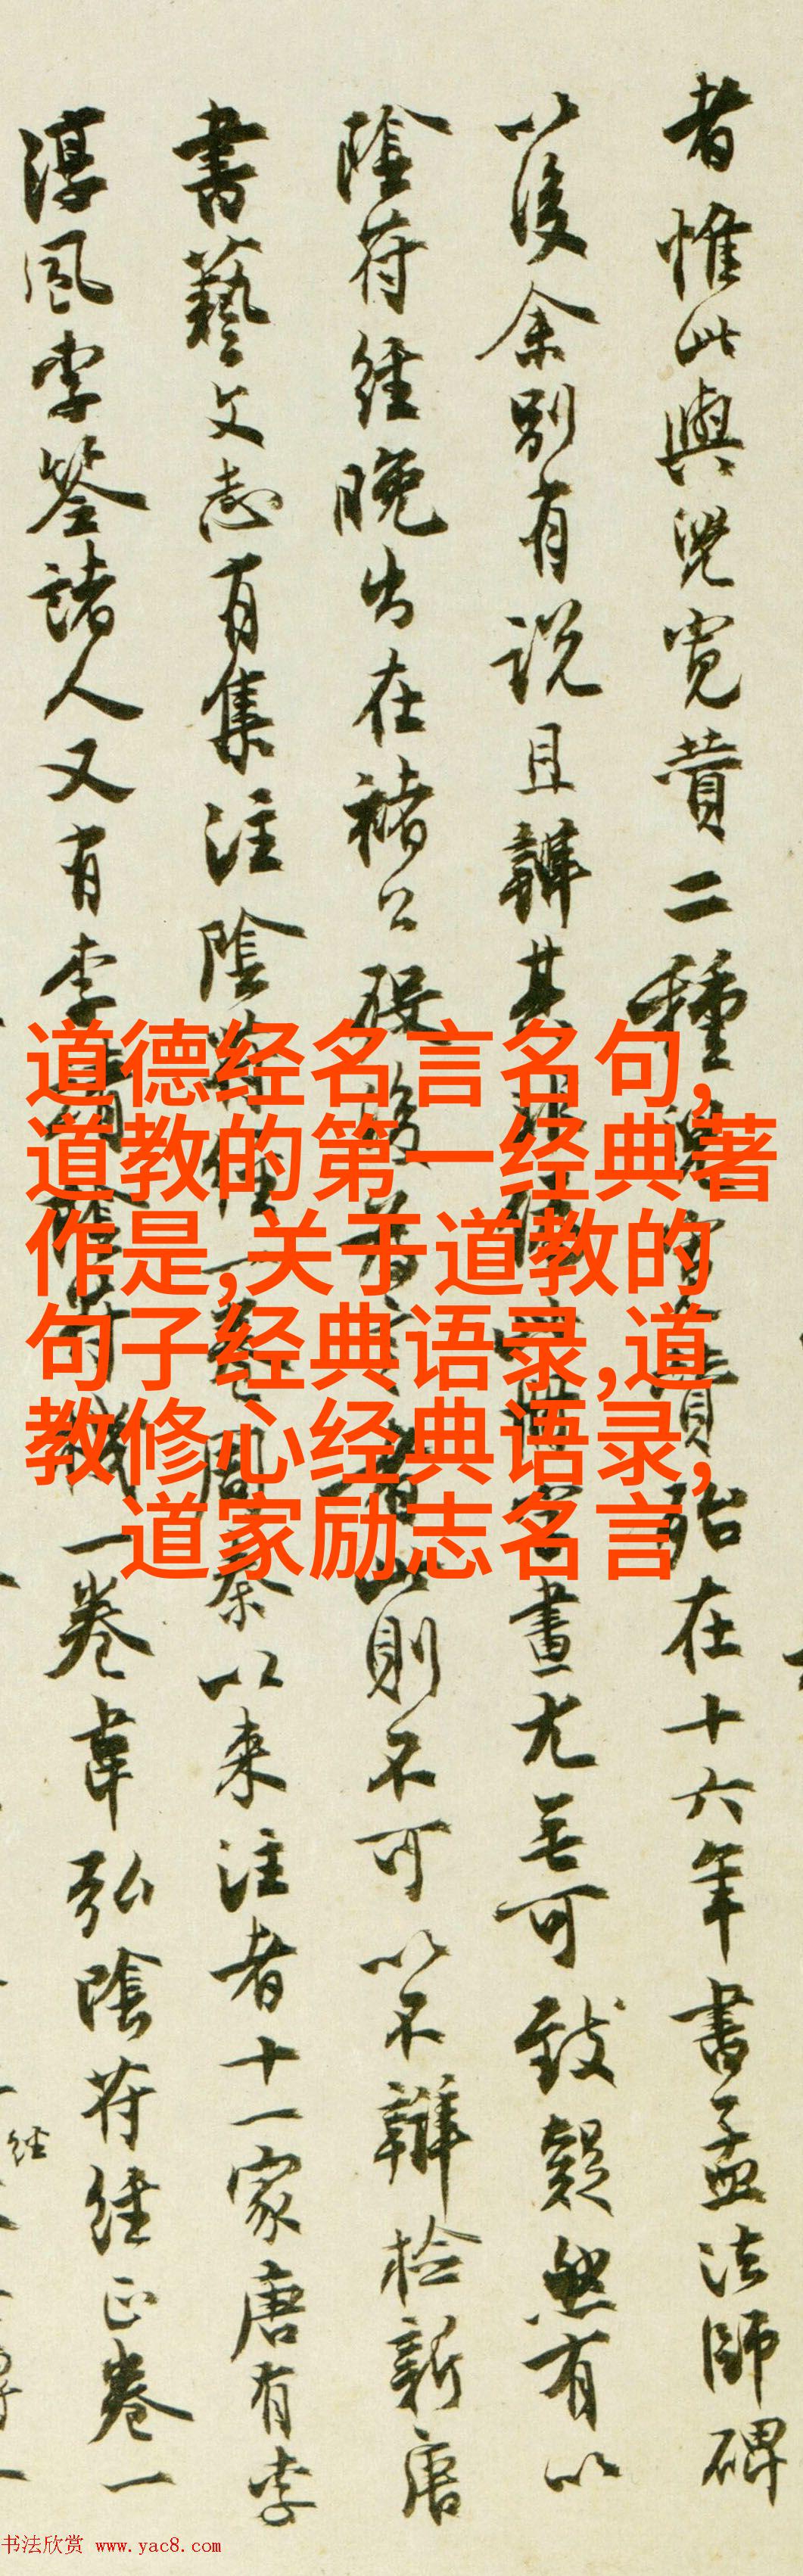 者惟此與兒寬贊二種兒寬贊殆在十六年書孟法師碑
以後余別有說且辯其畫尤無可致疑然有以
陰符經晚出在褚公歿後則不可以不辯檢新唐
書藝文志有集注陰符經一卷周秦以來注者十一家唐有李
淳風李筌諸人又有李靖陰符機一卷韋弘陰符經正卷一
經
道德经名言名句,
道教的第一经典著
作是,关于道教的
句子经典语录,道
教修心经典语录,
道家励志名言
书法欣赏 www.yac8.com